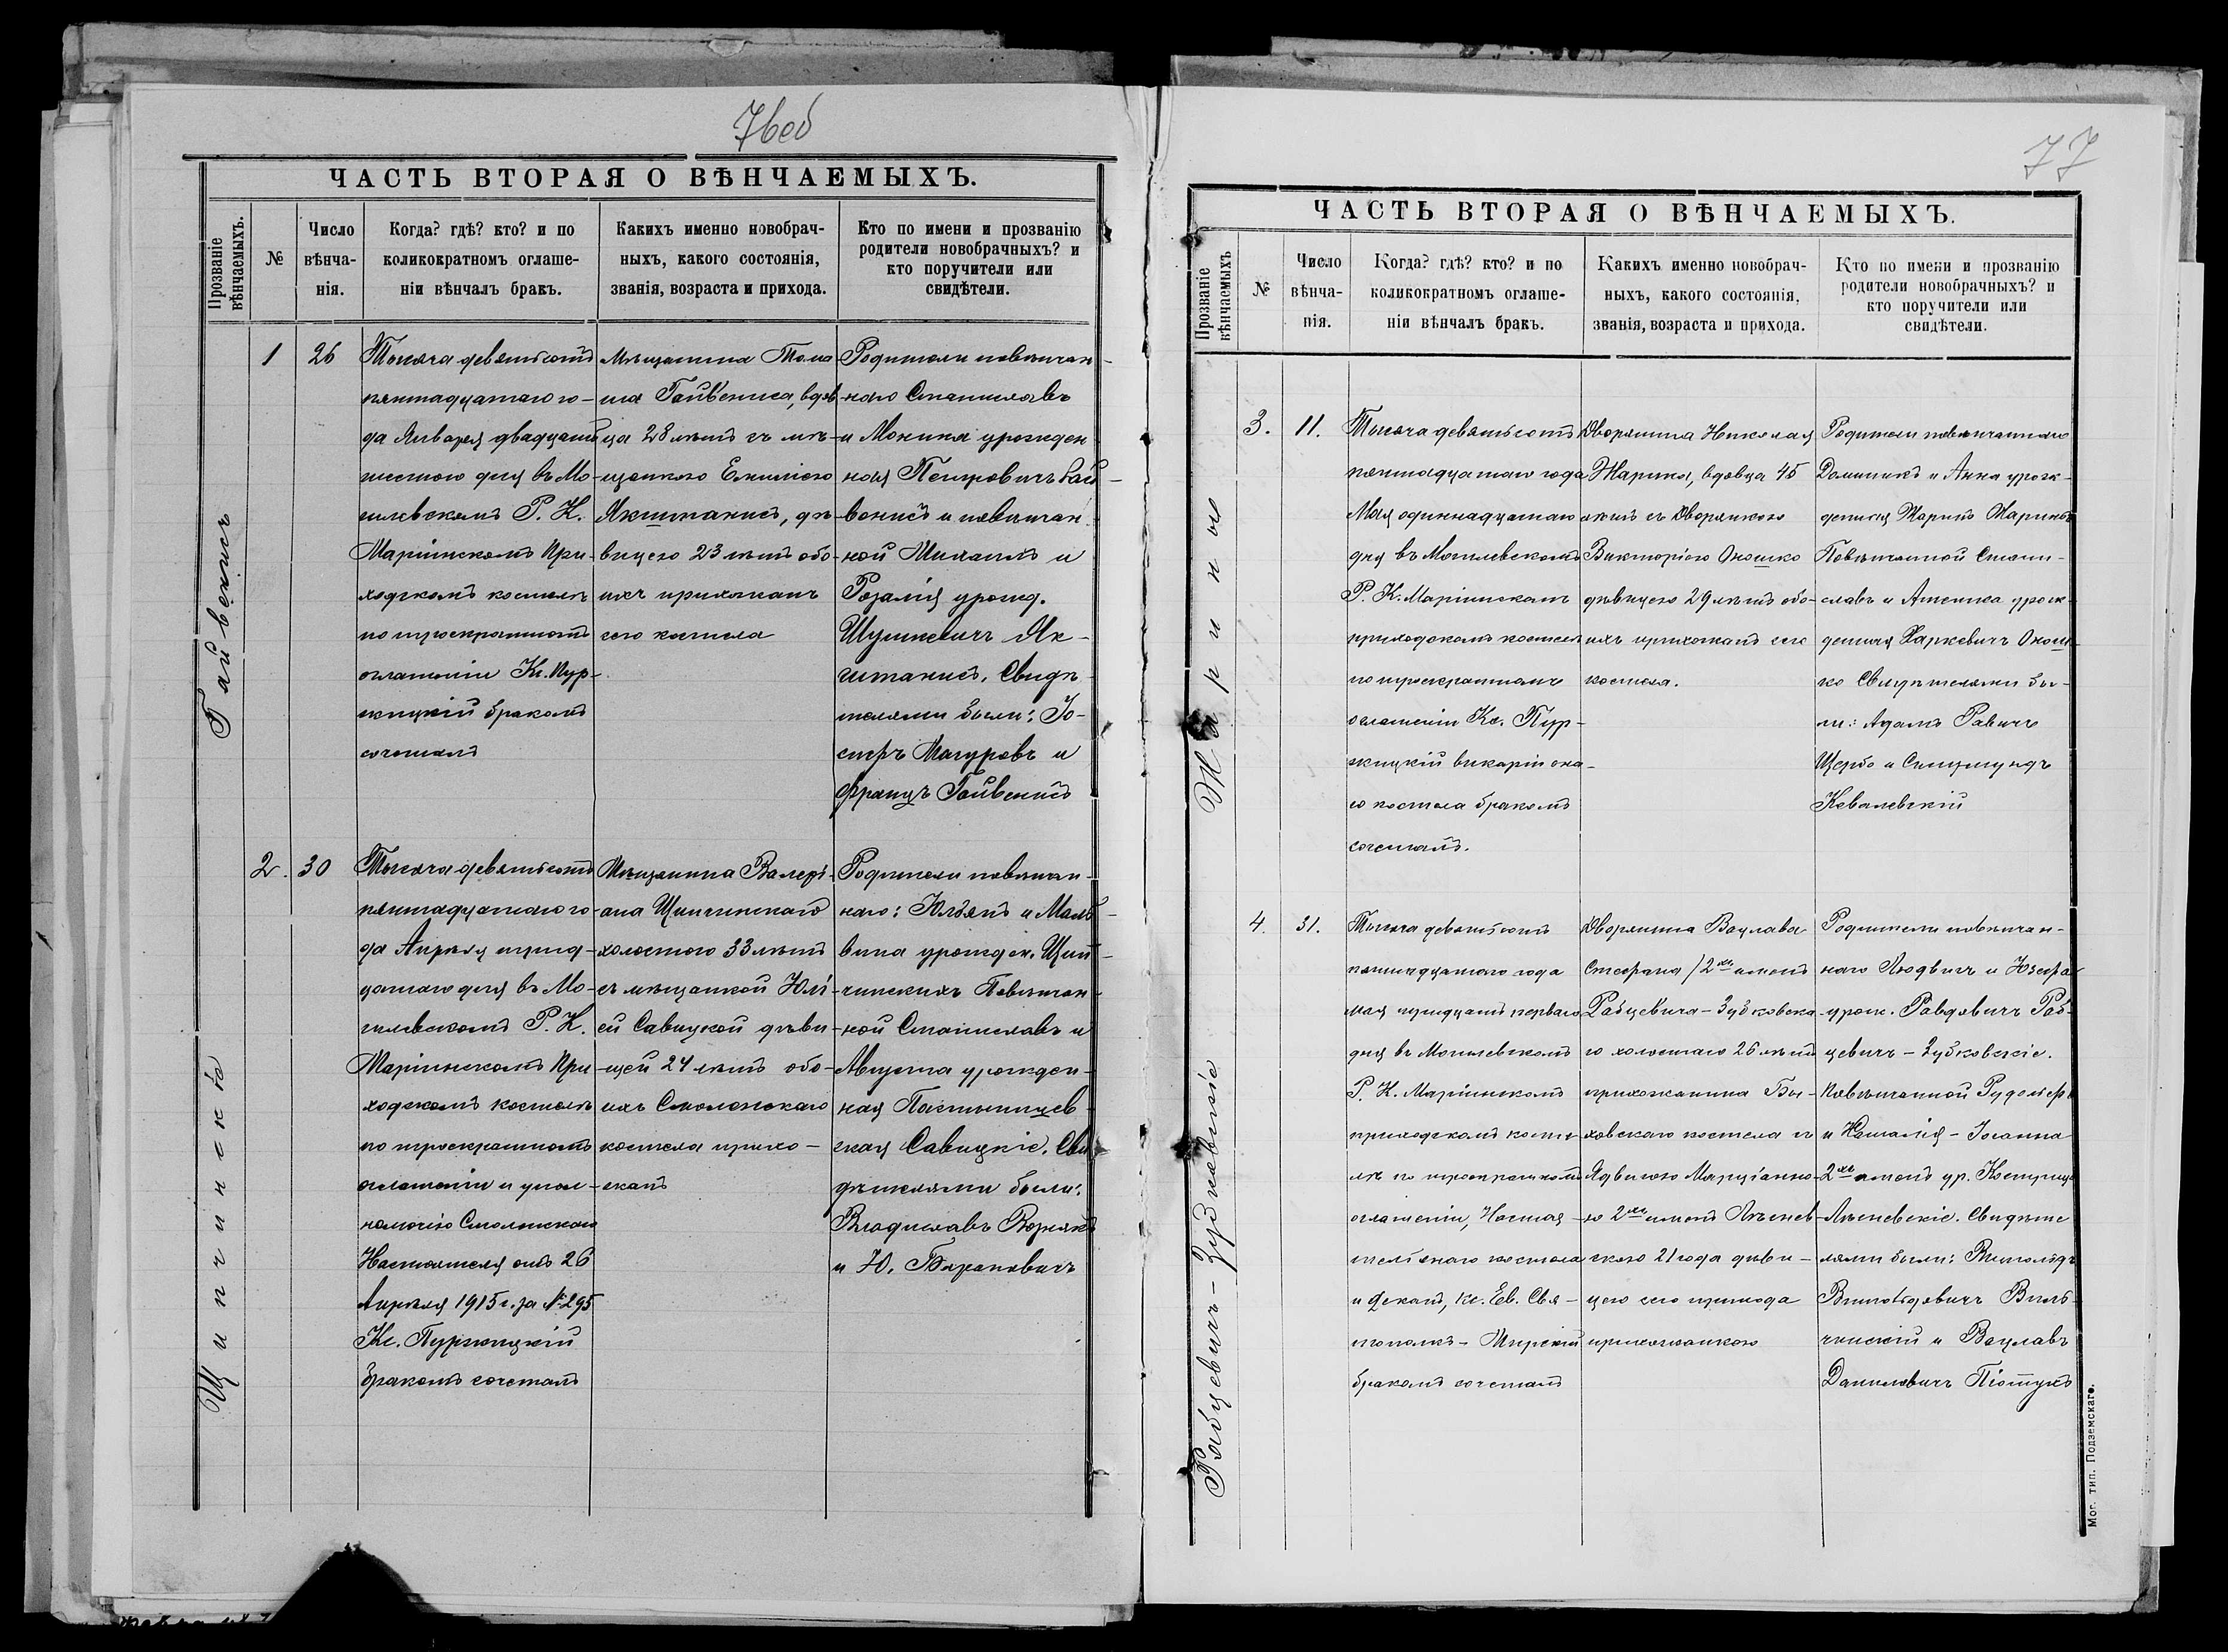 76об
ЧАСТЬ ВТОРАЯ О ВѢНЧАЕМЫХЪ.
Прозваніе
вѣнчаемыхъ.
№
Число
вѣнча-
нія.
Когда? гдѣ? кто? и по
коликократномъ оглаше-
ніи вѣнчалъ бракъ.
Какихъ именно новобрач-
ныхъ, какого состоянія,
званія, возраста и прихода.
Кто по имени и прозванію
родители новобрачныхъ? и
кто поручители или
свидѣтели.
Гайвенисъ
1
26
Тысяча девятьсотъ
пятнадцатаго го-
да Января двадцать
шестого дня въ Мо-
гилевскомъ Р. К.
Маріинскомъ При-
ходскомъ костелѣ
по троекратномъ
оглашеніи Кс. Пур-
жицкій бракомъ
сочеталъ
мѣщанина Тома
ша Гайвениса, вдов
ца 28 лѣтъ съ мѣ-
щанкою Емиліею
Якштанисъ, дѣ-
вицею 23 лѣтъ обо-
ихъ прихожанъ
сего костела
Родители повѣнчан-
наго Станиславъ
и Моника урожден
ная Петровичъ Гай-
венисъ и повѣнчан
ной Михаилъ и
Розалія урожд.
Шушкевичъ Як-
штанисъ. Свидѣ-
телями были: Іо-
сифъ Мачуровъ и
Францъ Гайвенисъ
Щипчинскіе
2.
30
Тысяча девятьсотъ
пятнадцатаго го-
да Апрѣля трид-
цатаго дня въ Мо-
гилевскомъ Р. К.
Маріинскомъ При
ходскомъ костелѣ
по троекратномъ
оглашеніи и упол-
номочію Смоленскаго
Настоятеля отъ 26
Апрѣля 1915 г. за № 295
Кс. Пуржицкій
бракомъ сочеталъ
Мѣщанина Валерь-
ана Щипчинскаго
холостого 33 лѣтъ
съ мѣщанкой Юлі-
ей Савицкой дѣви
цей 24 лѣтъ обо-
ихъ Смоленскаго
костела прихо-
жанъ
Родители повѣнчан-
наго: Юльянъ и Маль-
вина урожден. Щип-
чинскихъ Повѣнчан-
ной Станиславъ и
Августа урожден-
ная
ская Савицкіе. Сви
дѣтелями были:
Владиславъ
и Ю. Барановичъ
77
ЧАСТЬ ВТОРАЯ О ВѢНЧАЕМЫХЪ.
Прозваніе
вѣнчаемыхъ
№
Число
вѣнча-
нія.
Когда? гдѣ? кто? и по
коликократномъ оглаше-
ніи вѣнчалъ бракъ.
Какихъ именно новобрач-
ныхъ, какого состоянія,
званія, возраста и прихода.
Кто по имени и прозванію
родители новобрачныхъ? и
кто поручители или
свидѣтели.
Жарины
3.
11.
Тысяча девятьсотъ
пятнадцатаго года
Мая одиннадцатаго
дня въ Могилевскомъ
Р. К. Маріинскомъ
приходскомъ костелѣ
по троекратномъ
оглашеніи Кс. Пур-
жицкій викарій она-
го костела бракомъ
сочеталъ.
Дворянина Николая
Жарина, вдовца 45
лѣтъ съ Дворянкою
Викторіею Оношко
дѣвицею 29 лѣтъ обо-
ихъ прихожанъ сего
костела.
Родители повѣнчаннаго
Доминикъ и Анна урож-
денная Жаринъ
Повѣнчанной Стани-
славъ и урож-
денная Харкевичъ Онош-
ко Свидѣтелями бы-
ли: Адамъ Равичъ
Щербо и Сигизмундъ
Ковалевскій
Рабцевичъ - Зубковскіе
4.
31.
Тысяча девятьсотъ
пятнадцатаго года
мая тридцать перваго
дня въ Могилевскомъ
Р. К. Маріинскомъ
приходскомъ косте-
лѣ по троекратномъ
оглашеніи, Настоя-
тель онаго костела
и Деканъ, кс. Ев. Свя-
тополкъ - Мирскій
бракомъ сочеталъ
Дворянина Вацлава
Стефана / 2хъ именъ
Рабцевича - Зубковска-
го холостаго 26 лѣтъ
прихожанина Бы-
ховскаго костела съ
Ядвигою Марціанно-
ю 2хъ именъ
скою 21 года дѣви-
цею сего прихода
прихожанкою
Родители повѣнчан-
наго Людвигъ и Юзефа
урож. Равдовичъ Раб-
цевичъ - Зубковскіе.
Повѣнчанной Рудольфъ
и Наталія - Іоанна
2хъ именъ ур.
Свидѣте
лями были: Витольдъ
и Вацлавъ
Даниловичъ
Мог. тип. Подземскаго.